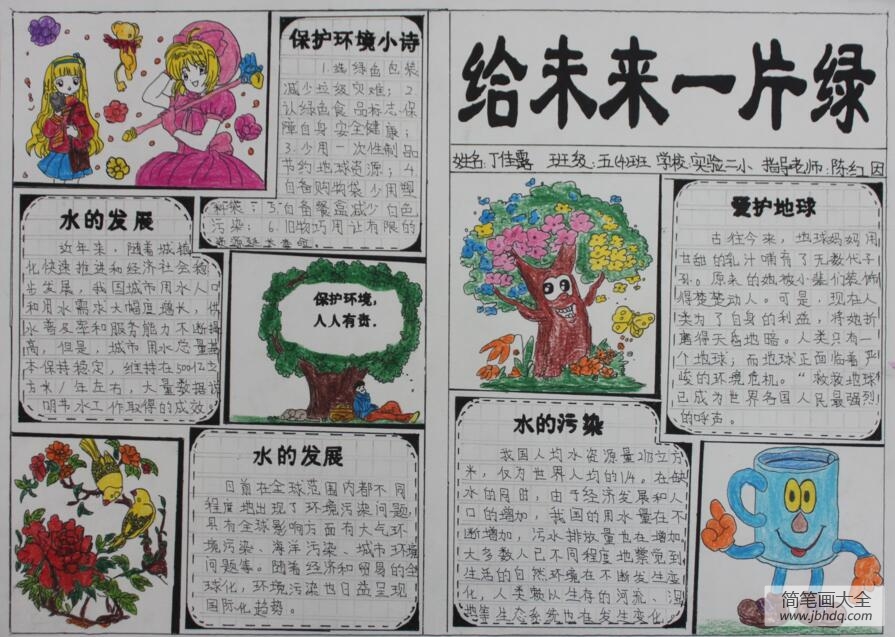 保护环境小诗
1.选绿色包装
减少垃圾灾难；2.
认绿色食品标志保
障自身安全健康；
3.少用一次性制品
节约地球资源；4.
自备购物袋少用塑
料袋；5.自备餐盒减少白色
污染；6.旧物巧用让有限的
资源延长寿命。
水的发展
近年来，随着城镇
化快速推进和经济社会稳
步发展，我国城市用水人口
和用水需求大幅度增长，供
水普及率和服务能力不断提
高，但是，城市用水总量基
本保持稳定，维持在500亿立
方米/年左右，大量数据说
明节水工作取得的成效。
保护环境，
人人有责.
水的发展
目前在全球范围内都不同
程度地出现了环境污染问题，
具有全球影响方面有大气环
境污染、海洋污染、城市环境
问题等。随着经济和贸易的全
球化，环境污染也日益呈现
国际化趋势。
给未来一片绿
姓名:丁佳露 班级:五(4)班 学校:实验二小 指导老师:陈红因
爱护地球
古往今来，地球妈妈用
甘甜的乳汁哺育了无数代子
孙。原来的她被小辈们装饰
得楚楚动人。可是，现在人
类为了自身的利益，将她折
磨得天昏地暗。人类只有一
个地球；而地球正面临着严
峻的环境危机。“救救地球”
已成为世界各国人民最强烈
的呼声。
水的污染
我国人均水资源量2173立方
米，仅为世界人均的1/4。在缺
水的同时，由于经济发展和人
口的增加，我国的用水量在不
断增加，污水排放量也在增加。
大多数人已不同程度地察觉到
生活的自然环境在不断发生恶
化，人类赖以生存的河流、湿
地等生态系统也在发生变化。
简笔画大全
www.jbhdq.com